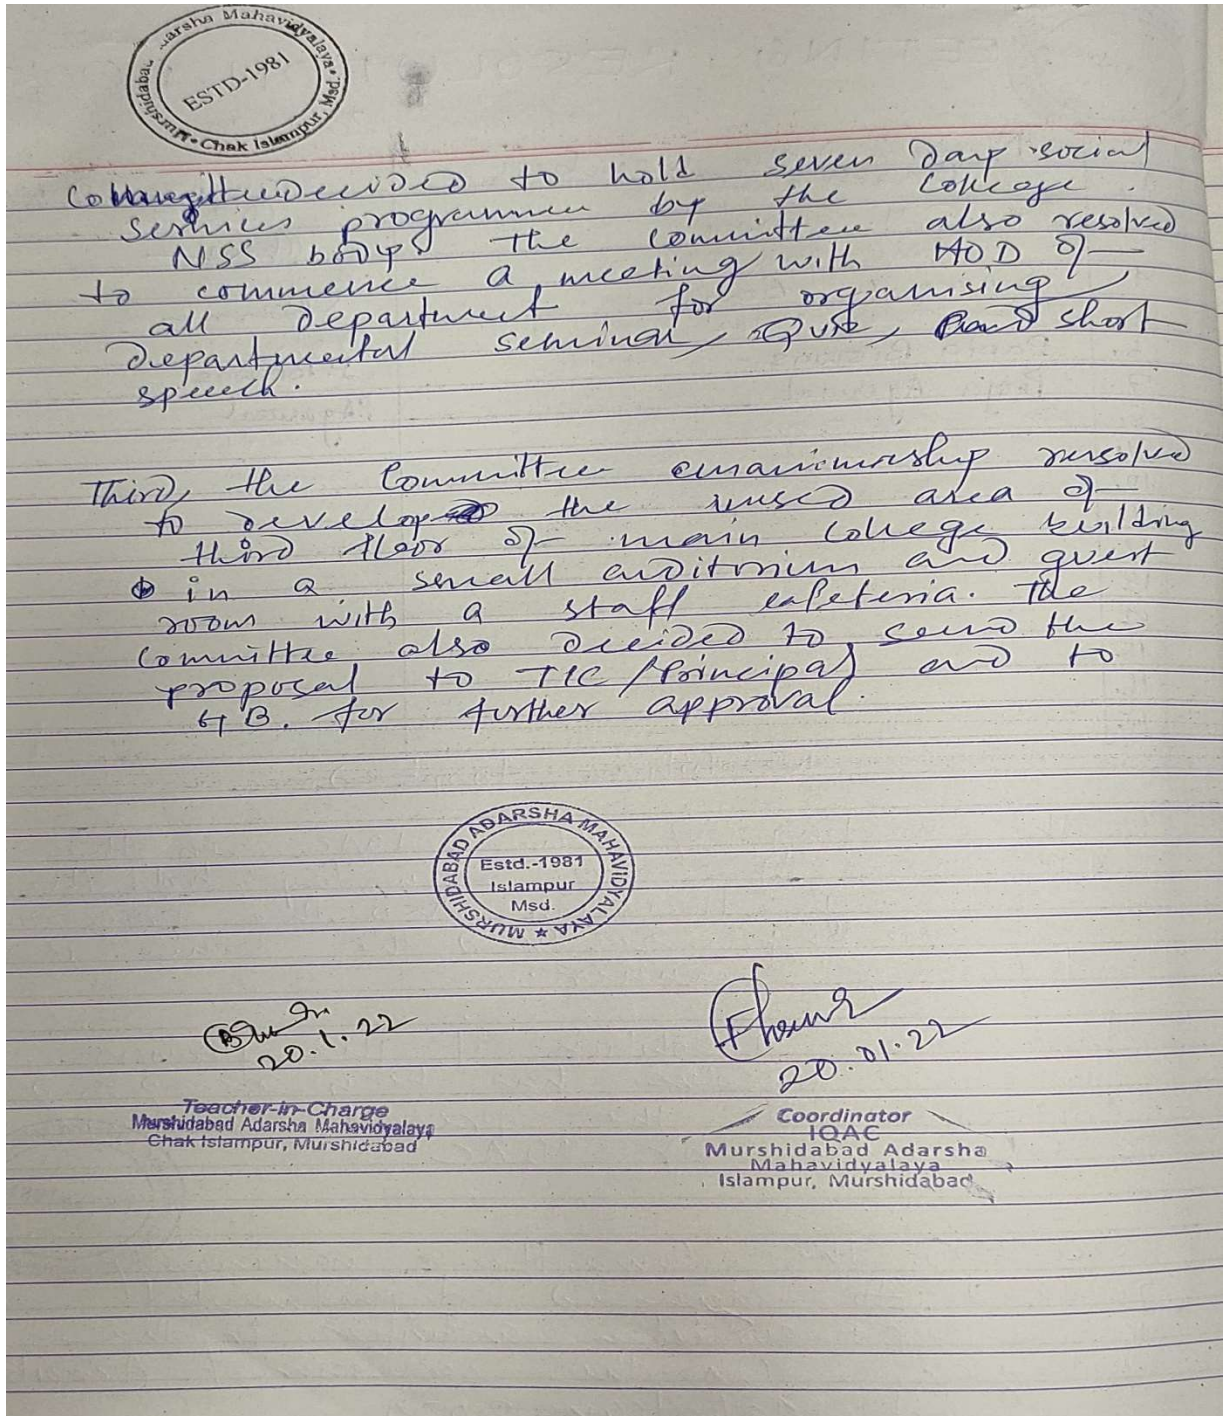 Murshidabad Adarsha Mahavidyalaya • Chak Islampur, Msd.
ESTD-1981
decided to hold seven Day social
services programmen by the College
NSS body. the Committee also resolved
to commence a meeting with HOD of
all department for organising
departmental seminar, Quse, and short
speech.
Third, the Committee resolved
to develop the unused area of
third floor of main college building
in a small auditorium and guest
room with a staff cafeteria. The
Committee also decided to send the
proposal to TIC/Principal and to
GB. for further approval.
MURSHIDABAD ADARSHA MAHAVIDYALAYA ★
Estd.-1981
Islampur
Msd.
20.1.22
20.01.22
Teacher-in-Charge
Murshidabad Adarsha Mahavidyalaya
Chak Islampur, Murshidabad
Coordinator
IQAC
Murshidabad Adarsha
Mahavidyalaya
Islampur, Murshidabad